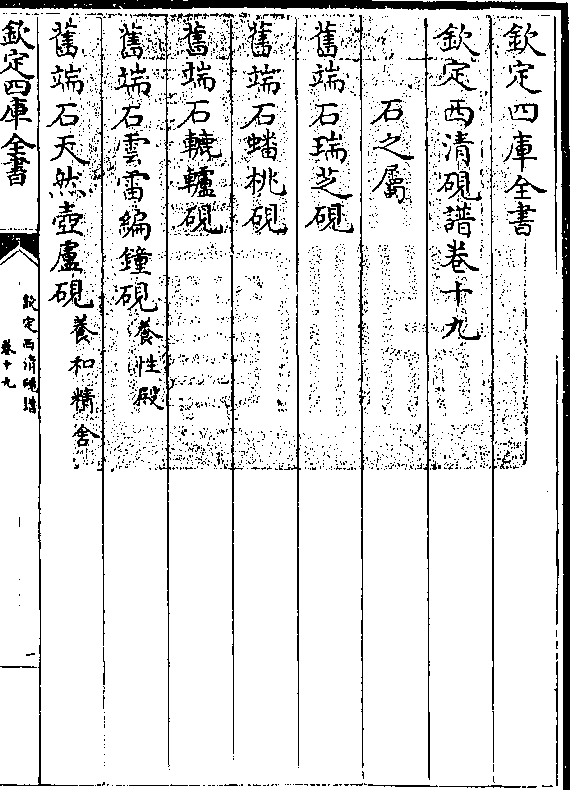 欽定四庫全書
欽定西清硯譜卷十九
石之屬
舊端石瑞芝硯
舊端石蟠桃硯
舊端石轆轤硯
舊端石雲雷編鐘硯 養性殿
舊端石天然壺盧硯 養和精舍
欽定四庫全書
欽定西清硯譜
卷十九
一